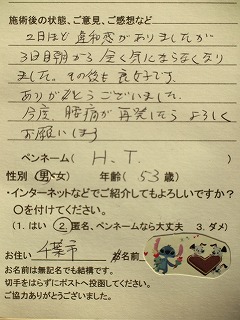 施術後の状態、ご意見、ご感想など
2日ほど違和感がありましたが
3日目朝から全く気にならなくなり
ました。その後も良好です。
ありがとうございました。
今度、腰痛が再発したらよろしく
お願いします
ペンネーム( H.T. )
性別 男・女) 年齢( 53 歳)
・インターネットなどでご紹介してもよろしいですか?
○を付けてください。
(1. はい 2. 匿名、ペンネームなら大丈夫 3. ダメ)
お住い 千葉市 お名前
お名前は無記名でも結構です。
切手をはらずにポストへ投函してください。
ご協力ありがとうございました。